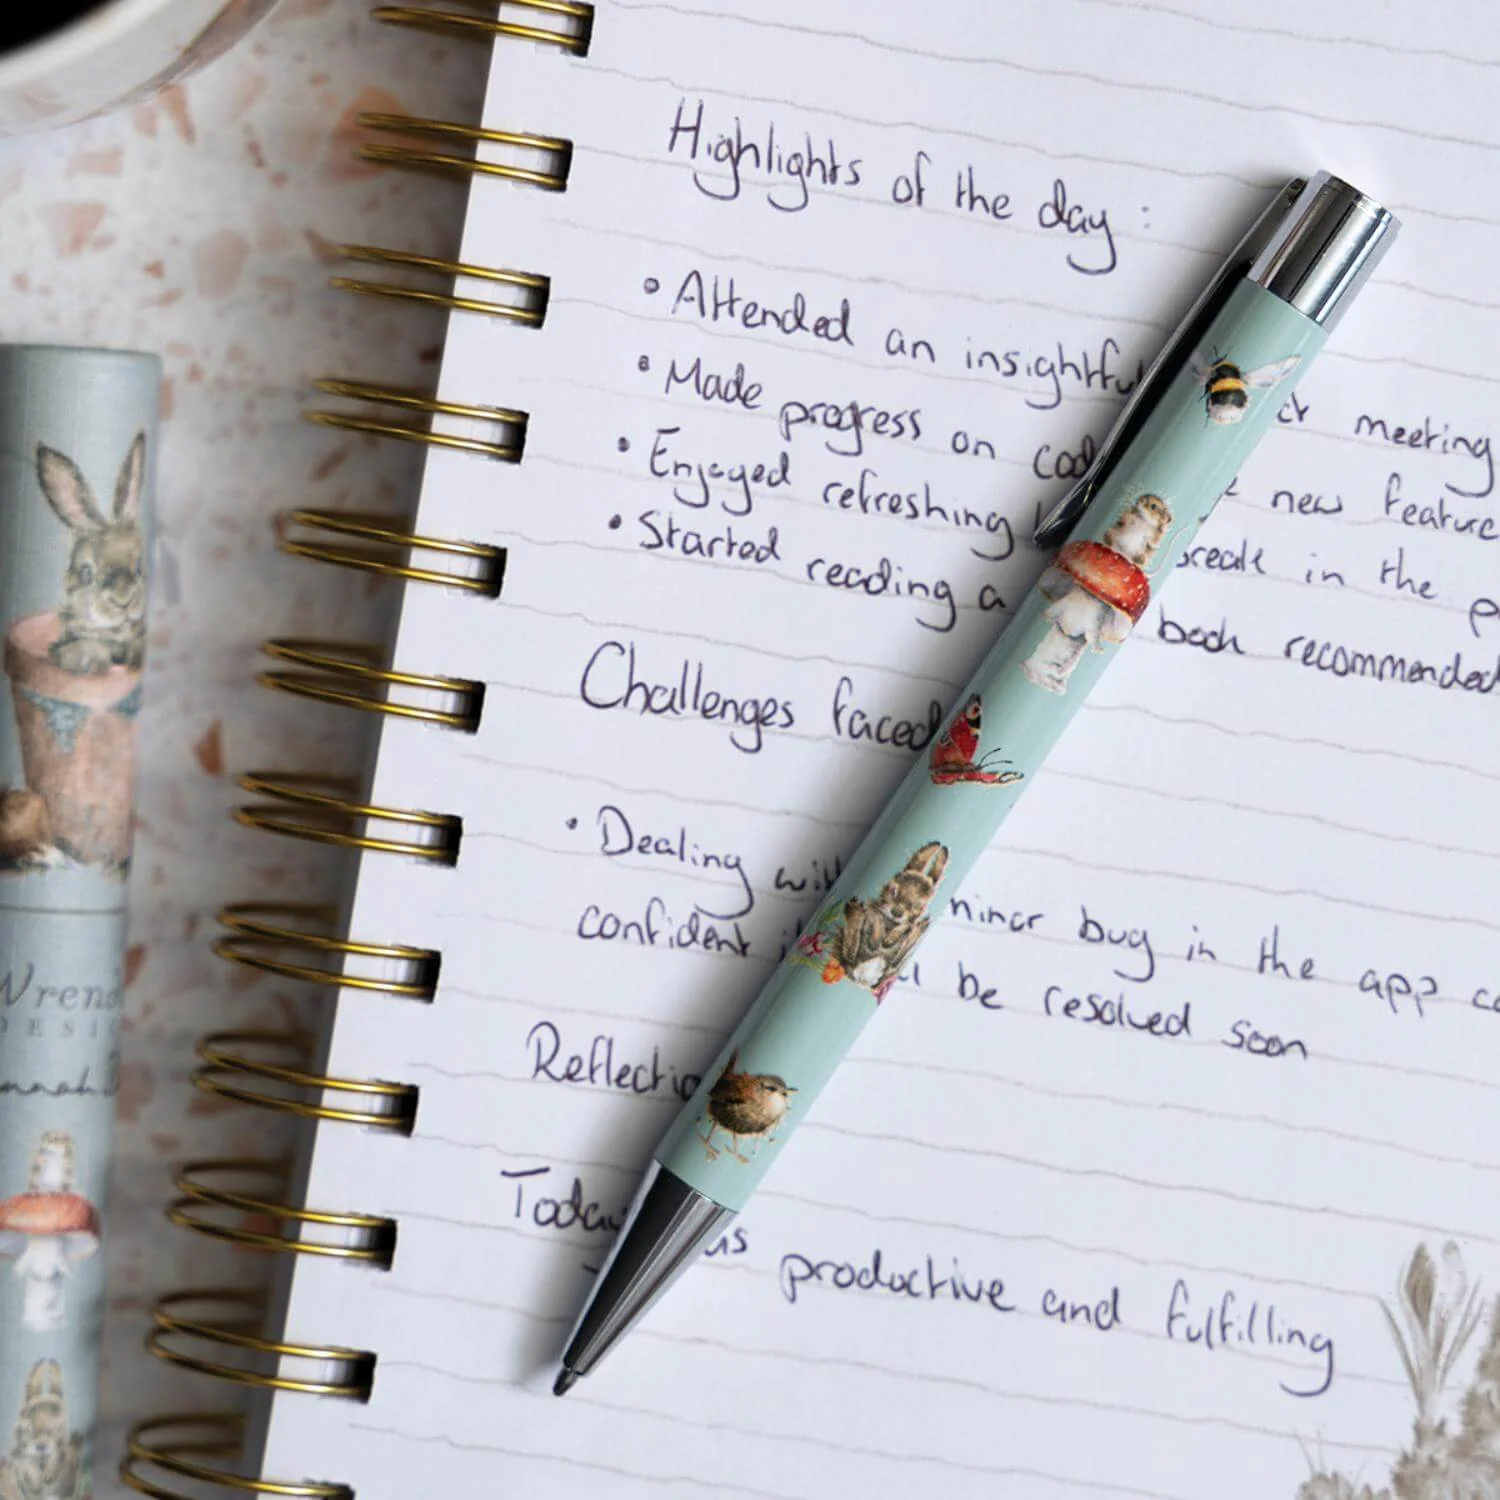 Highlights of the day :
• Attended an insightful meeting
• Made progress on new feature
• Enjoyed refreshing break in the
• Started reading a book recommended
Challenges faced
• Dealing with minor bug in the app
confident be resolved soon
Reflectio
Today was productive and fulfilling
Wrend
DESI